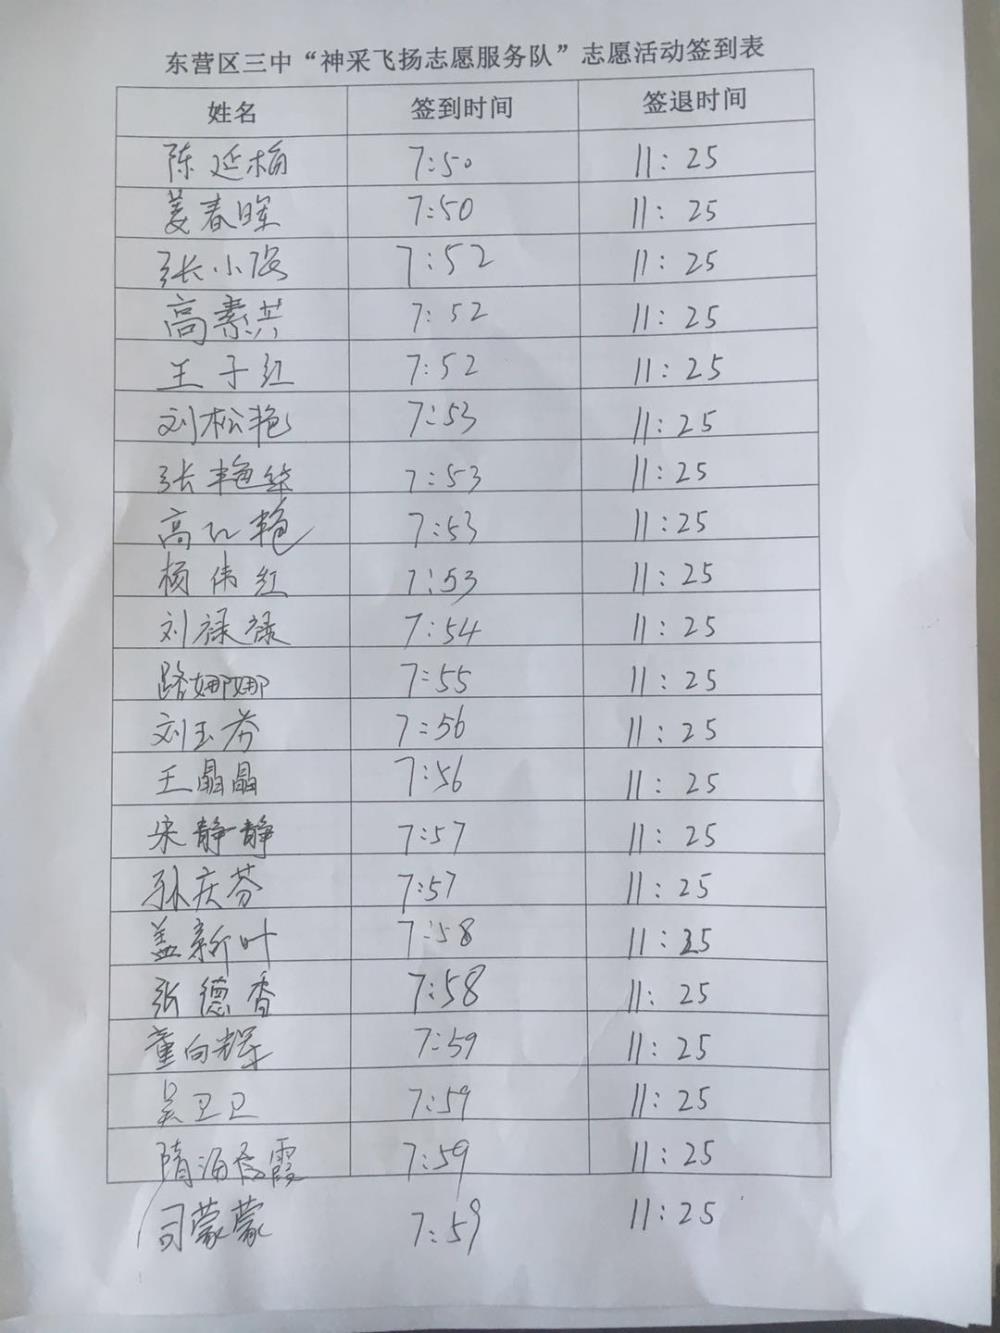 东营区三中“神采飞扬志愿服务队”志愿活动签到表
姓名 签到时间 签退时间
陈延梅 7:50 11:25
姜春晖 7:50 11:25
张小 7:52 11:25
高素芸 7:52 11:25
王子红 7:52 11:25
刘松艳 7:53 11:25
张艳华 7:53 11:25
高红艳 7:53 11:25
杨伟红 7:53 11:25
刘禄禄 7:54 11:25
路娜娜 7:55 11:25
刘玉芬 7:56 11:25
王晶晶 7:56 11:25
宋静静 7:57 11:25
孙庆芬 7:57 11:25
盖新叶 7:58 11:25
张德香 7:58 11:25
董向辉 7:59 11:25
吴卫卫 7:59 11:25
隋海霞 7:59 11:25
司蒙蒙 7:59 11:25